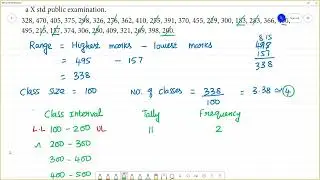 a X std public examination.
328, 470, 405, 375, 298, 326, 276, 362, 410, 255, 391, 370, 455, 229, 300, 183, 283, 366,
495, 215, 157, 374, 306, 280, 409, 321, 269, 398, 200.
Range = Highest marks - lowest marks
= 495 - 157
= 338
8 15
498
157
338
Class size = 100 No. of classes = 338/100 = 3.38 ≈ 4
Class Interval Tally Frequency
L.L 100 - 200 UL || 2
200 - 300
300 - 400
400 - 500